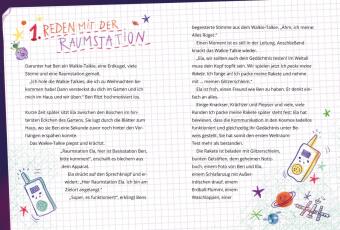 1. REDEN MIT DER
RAUMSTATION
Darunter hat Ben ein Walkie-Talkie, eine Erdkugel, viele
Sterne und eine Raumstation gemalt.
„Ich hole die Walkie-Talkies, die ich zu Weihnachten be-
kommen habe! Dann versteckst du dich im Garten und ich
mich im Haus und wir üben.“ Ben flitzt hochmotiviert los.
Kurze Zeit später sitzt Ela zwischen den Büschen im hin-
tersten Eckchen des Gartens. Sie lugt durch die Blätter zum
Haus, wo sie Ben eine Sekunde zuvor noch hinter den Vor-
hängen erspähen konnte.
Das Walkie-Talkie piepst und krächzt.
„Raumstation Ela, hier ist Basisstation Ben,
bitte kommen!“, erschallt es blechern aus
dem Apparat.
Ela drückt auf den Sprechknopf und er-
widert: „Hier Raumstation Ela. Ich bin am
Zielort angelangt.“
„Super, es funktioniert“, erklingt Bens
begeisterte Stimme aus dem Walkie-Talkie. „Ähm, ich meine:
Alles Roger.“
Einen Moment ist es still in der Leitung. Anschließend
knackt das Walkie-Talkie wieder.
„Ela, wir sollten auch dein Gedächtnis testen! Im Weltall
muss dein Kopf topfit sein. Wir spielen jetzt Ich packe meine
Rakete. Ich fange an! Ich packe meine Rakete und nehme
mit ... meinen Glitzerschleim.“
Ela ist froh, einen Freund wie Ben zu haben. Er denkt ein-
fach an alles.
Einige Knackser, Krächzer und Piepser und viele, viele
Runden Ich packe meine Rakete später steht fest: Ela hat
bewiesen, dass die Kommunikation in den Kosmos tadellos
funktioniert und gleichzeitig ihr Gedächtnis unter Be-
weis gestellt. Sie hat somit den ersten Weltraum-
Test mehr als bestanden.
Die Rakete ist beladen mit Glitzerschleim,
bunten Geloffen, dem geheimen Notiz-
buch, einem Foto von Ben und Ela,
einem Schlafanzug mit Außer-
irdischen drauf, einem
Erdball-Flummi, einem
Waschlappen, einer